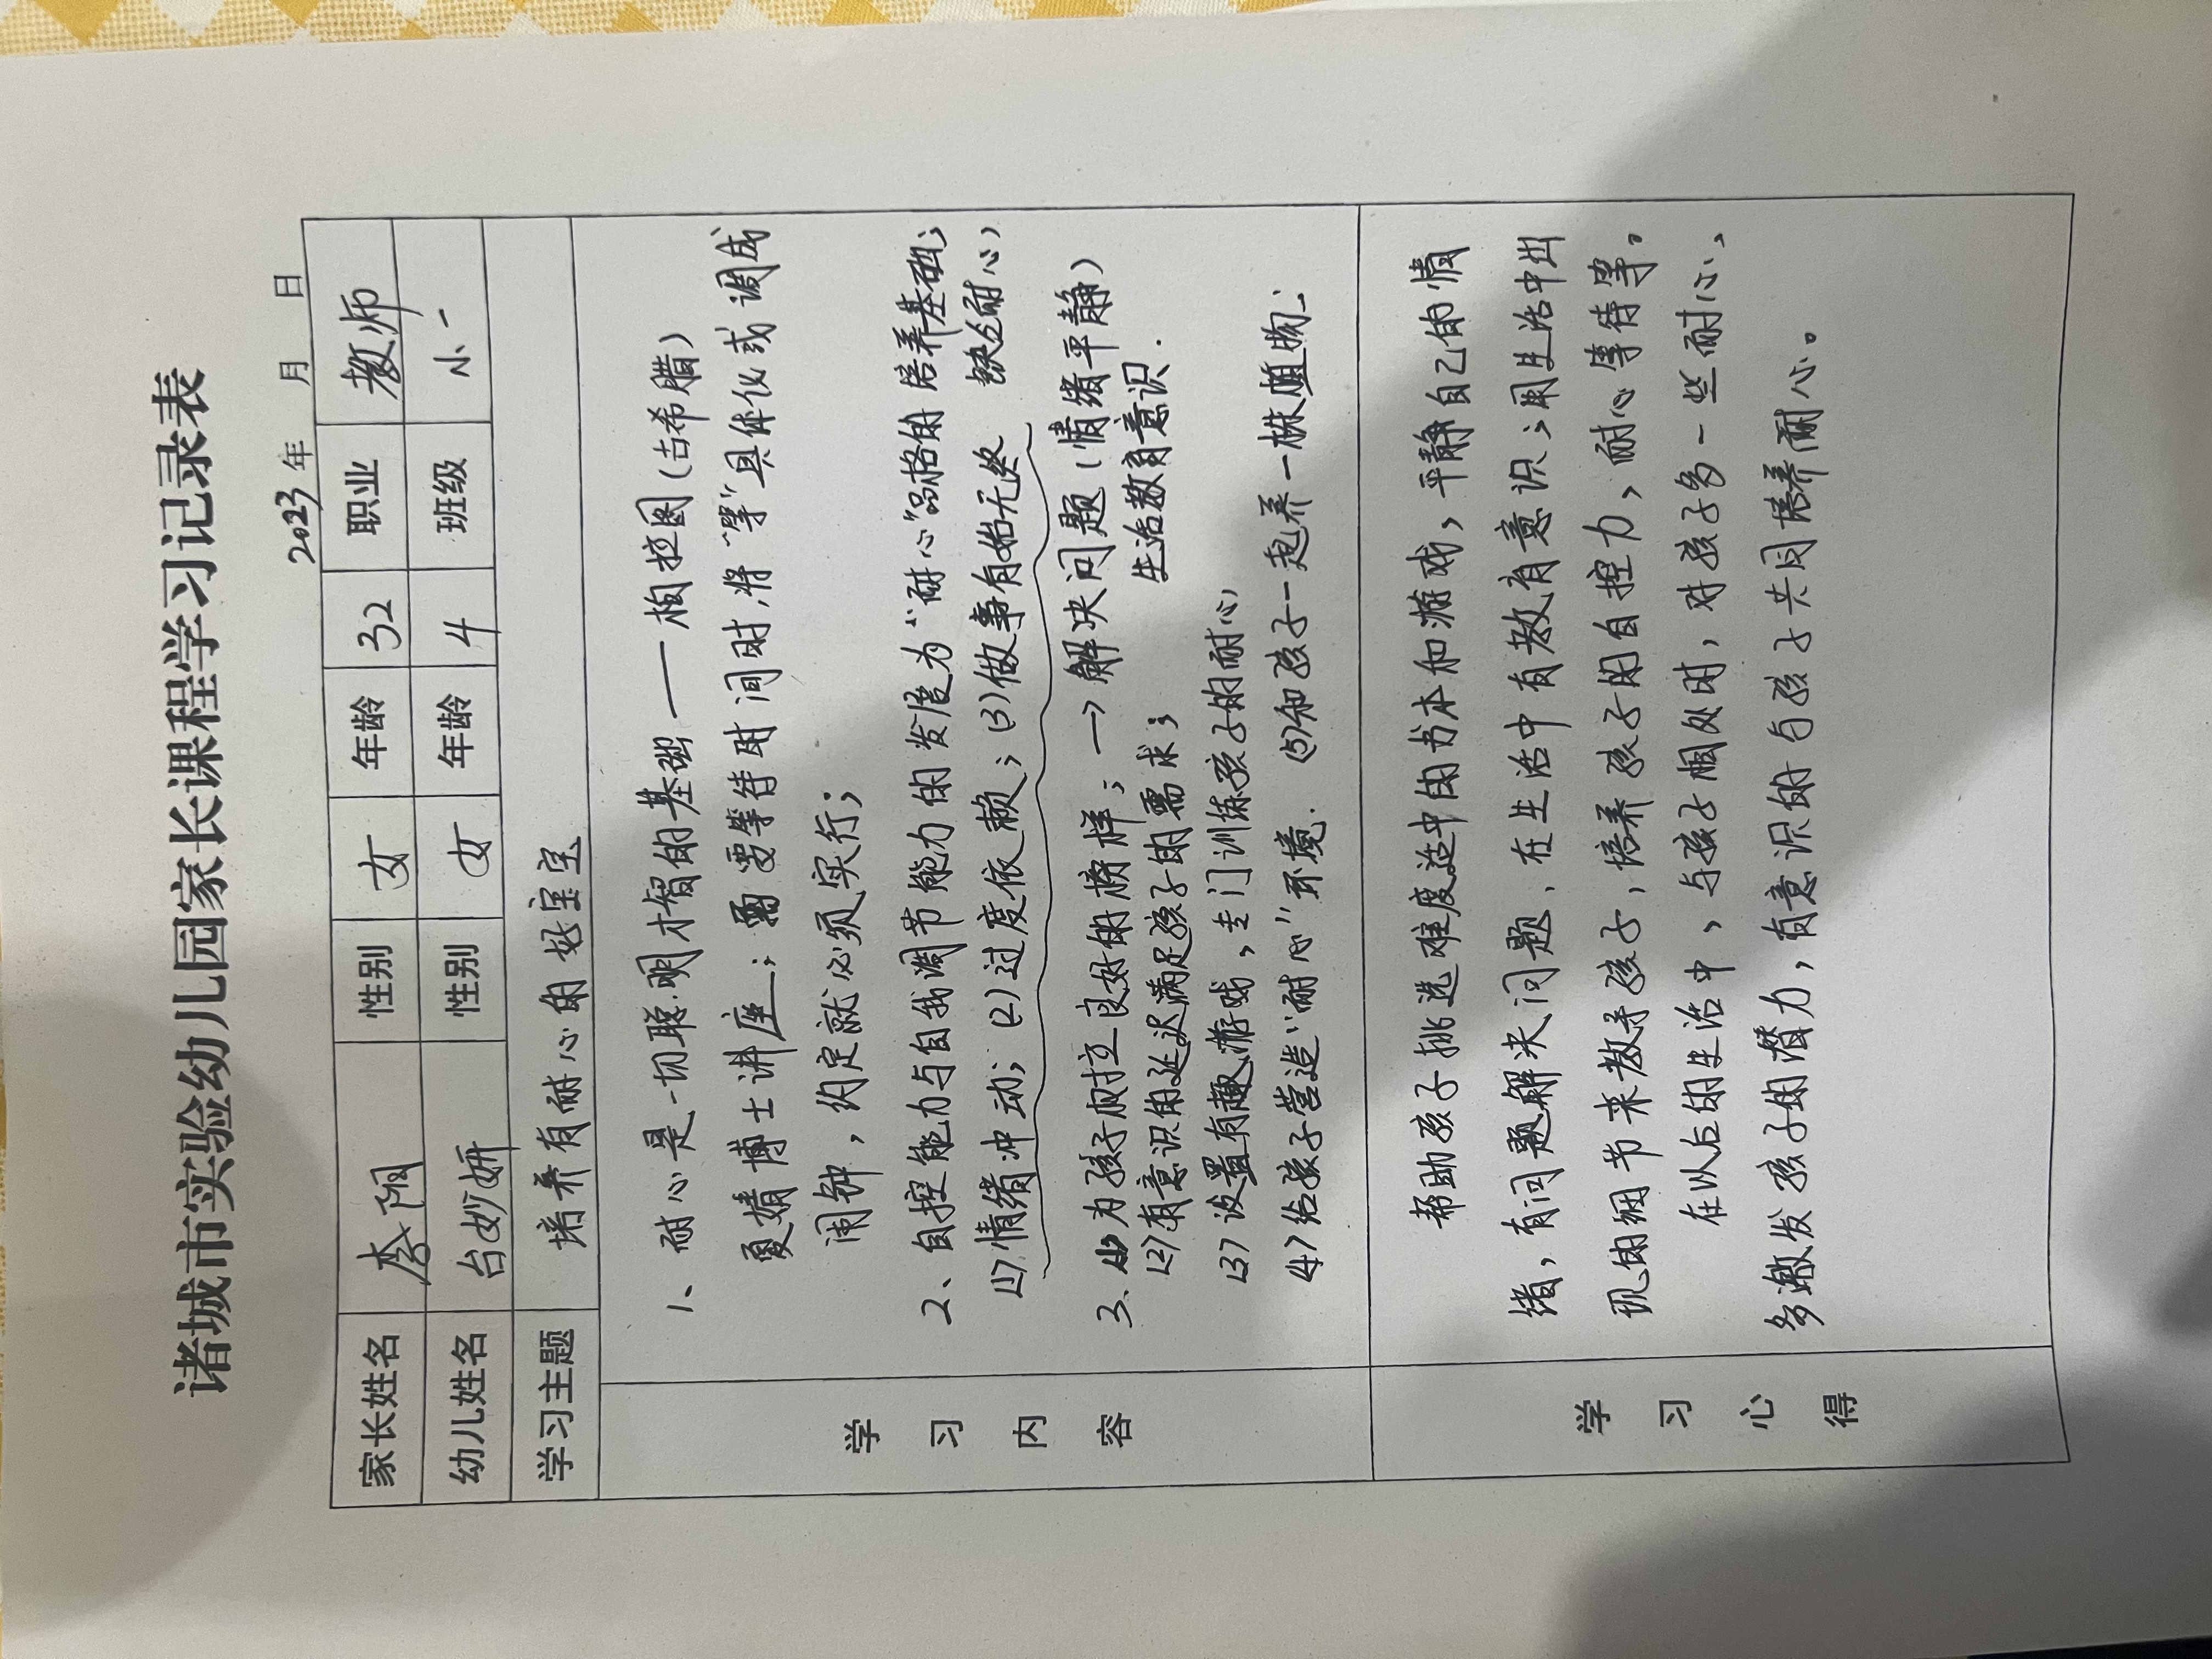 诸城市实验幼儿园家长课程学习记录表
2023年 月 日
家长姓名 李阳 性别 女 年龄 32 职业 教师
幼儿姓名 台妙妍 性别 女 年龄 4 班级 小一
学习主题 培养有耐心的好宝宝
学习内容
1、耐心是一切聪明才智的基础——柏拉图(古希腊)
夏婧博士讲座;需要等待时间时,将"等"具体化或调成
闹钟,约定就必须实行;
2、自控能力与自我调节能力的发展为"耐心"品格的培养基础;
(1)情绪冲动;(2)过度依赖;(3)做事有始无终 缺乏耐心
3、(1)为孩子树立良好的榜样;→解决问题(情绪平静)
生活教育意识.
(2)有意识的延迟满足孩子的需求;
(3)设置有趣游戏,专门训练孩子的耐心
(4)给孩子营造"耐心"环境. (5)和孩子一起养一株植物.
学习心得
帮助孩子挑选难度适中的书本和游戏,平静自己的情
绪,有问题解决问题.在生活中有教育意识;用生活中出
现的细节来教导孩子,培养孩子的自控力、耐心等待等。
在以后的生活中、与孩子相处时,对孩子多一些耐心、
多激发孩子的潜力,有意识的与孩子共同培养耐心。